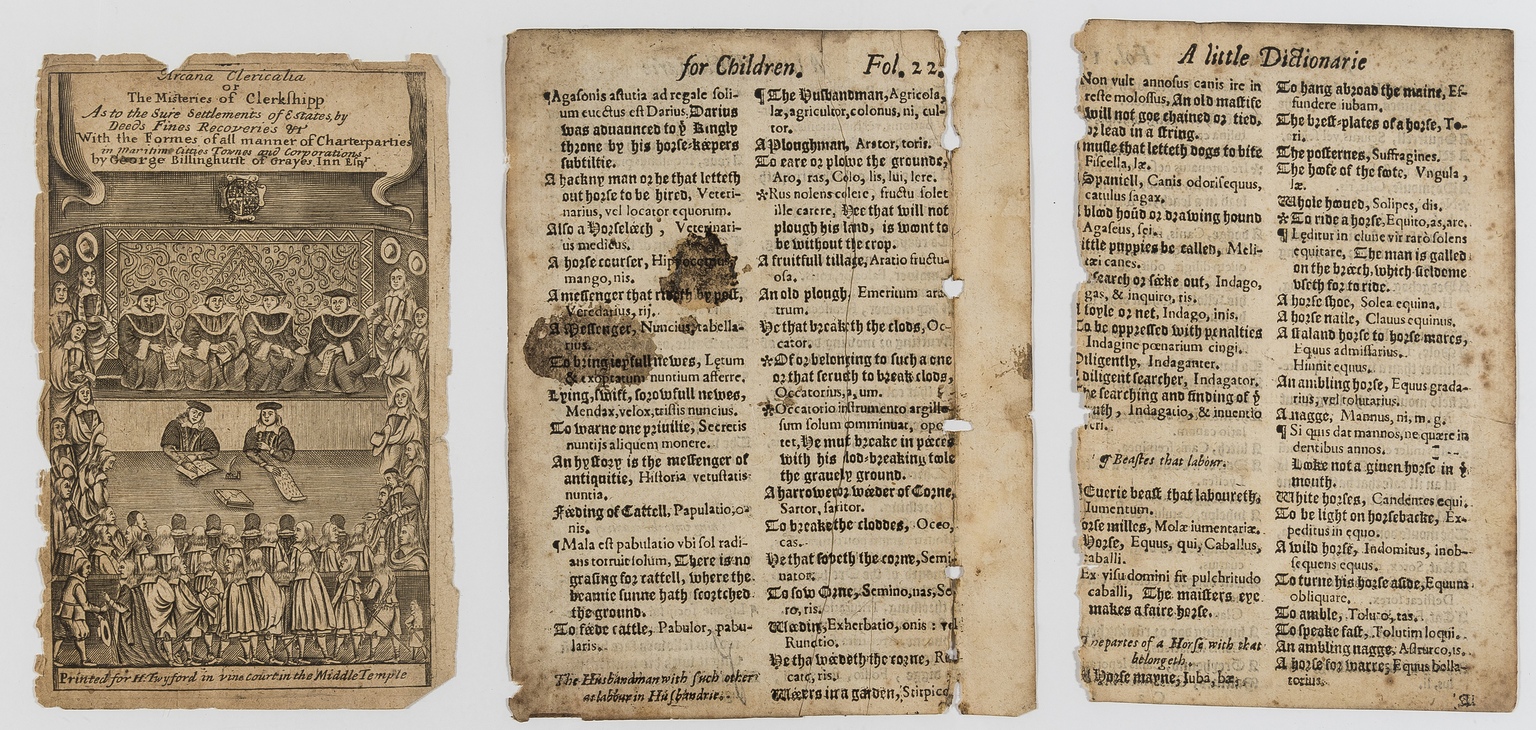 Arcana Clericalia
or
The Misteries of Clerkshipp
As to the Sure Settlements of Estates, by
Deeds Fines Recoveries &c
With the Formes of all manner of Charterparties
in maritime Citties Townes and Corporations
by George Billinghurst of Grayes Inn Esqr
Printed for H. Twyford in vine court in the Middle Temple
for Children. Fol. 22.
¶Agasonis astutia ad regale soli-
um euectus est Darius, Darius
was aduaunced to yͤ Kingly
throne by his horse-kéepers
subtiltie.
A hackny man or he that letteth
out horse to be hired, Veteri-
narius, vel locator equorum.
Also a Horseléech, Veterinari-
us medicus.
A horse courser,
mango, nis.
A messenger that rideth by post,
Veredarius, rij.
A Messenger, Nuncius, tabella-
rius.
To bring ioyfull newes, Lętum
& exoptatum nuntium afferre.
Lying, swift, sorowfull newes,
Mendax, velox, tristis nuncius.
To warne one priuilie, Secretis
nuntijs aliquem monere.
An hystory is the messenger of
antiquitie, Historia vetustatis
nuntia.
Féeding of Cattell, Papulatio, o-
nis.
¶Mala est pabulatio vbi sol radi-
ans torruit solum, There is no
grasing for cattell, where the
beamie sunne hath scortched
the ground.
To féede cattle, Pabulor, pabu-
laris.
The Husbandman with such other
as labour in Husbandrie.
¶The Husbandman, Agricola,
læ, agricultor, colonus, ni, cul-
tor.
A Ploughman, Arator, toris.
To eare or plowe the grounde,
Aro, ras, Colo, lis, lui, lere.
*Rus nolens colere, fructu solet
ille carere, Hee that will not
plough his land, is woont to
be without the crop.
A fruitfull tillage, Aratio fructu-
osa.
An old plough, Emeritum ara-
trum.
He that breaketh the clods, Oc-
cator.
*Of or belonging to such a one
or that serueth to break clods,
Occatorius, a, um.
*Occatorio instrumento argillo-
sum solum comminuat, opo
tet, He must breake in péeces
with his clod-breaking toole
the grauely ground.
A harrower or wéeder of Corne,
Sartor, saritor.
To breake the cloddes, Occo,
cas.
He that soweth the corne, Semi
nator.
To sow Corne, Semino, nas, Se
ro, ris.
Wéeding, Exherbatio, onis: vel
Runctio.
He tha wéedeth the corne, Ru
cato, ris.
Wéeders in a garden, Stirpica
A little Dictionarie
Non vult annosus canis ire in
reste molossus, An old mastife
will not goe chained or tied,
or lead in a string.
musle that letteth dogs to bite
Fiscella, læ.
Spaniell, Canis odorisequus,
catulus sagax.
blood houd or drawing hound
Agaseus, sei.
ittle puppies be called, Meli-
tæi canes.
search or séeke out, Indago,
gas, & inquiro, ris.
toyle or net, Indago, inis.
To be oppressed with penalties
Indagine pœnarium cingi.
Diligently, Indaganter.
diligent searcher, Indagator.
he searching and finding of yͤ
uth, Indagatio, & inuentio
veri.
¶ Beastes that labour.
Euerie beast that laboureth,
Iumentum.
orse milles, Molæ iumentariæ.
Horse, Equus, qui, Caballus,
caballi.
Ex visu domini fit pulchritudo
caballi, The maisters eye
makes a faire horse.
The partes of a Horse with that
belongeth.
Horse mayne, Iuba, bæ.
To hang abroad the maine, Ef-
fundere iubam.
The brest-plates of a horse, To-
ri.
The posternes, Suffragines.
The hoofe of the foote, Vngula,
læ.
Whole hooued, Solipes, dis.
*To ride a horse, Equito, as, are.
¶ Lęditur in clune vir rarò solens
equitare, The man is galled
on the bréech, which seldome
vseth for to ride.
A horse shoe, Solea equina.
A horse naile, Clauus equinus.
A staland horse to horse mares,
Equus admissarius.
Hinnit equus.
An ambling horse, Equus grada-
rius, vel tolutarius.
A nagge, Mannus, ni, m. g.
¶ Si quis dat mannos, ne quære in
dentibus annos.
Looke not a giuen horse in yͤ
mouth.
White horses, Candentes equi.
To be light on horsebacke, Ex-
peditus in equo.
A wild horse, Indomitus, inob-
sequens equus.
To turne his horse aside, Equum
obliquare.
To amble, Toluto, tas.
To speake fast, Tolutim loqui.
An ambling nagge, Asturco, is.
A horse for warre, Equus bella-
torius.